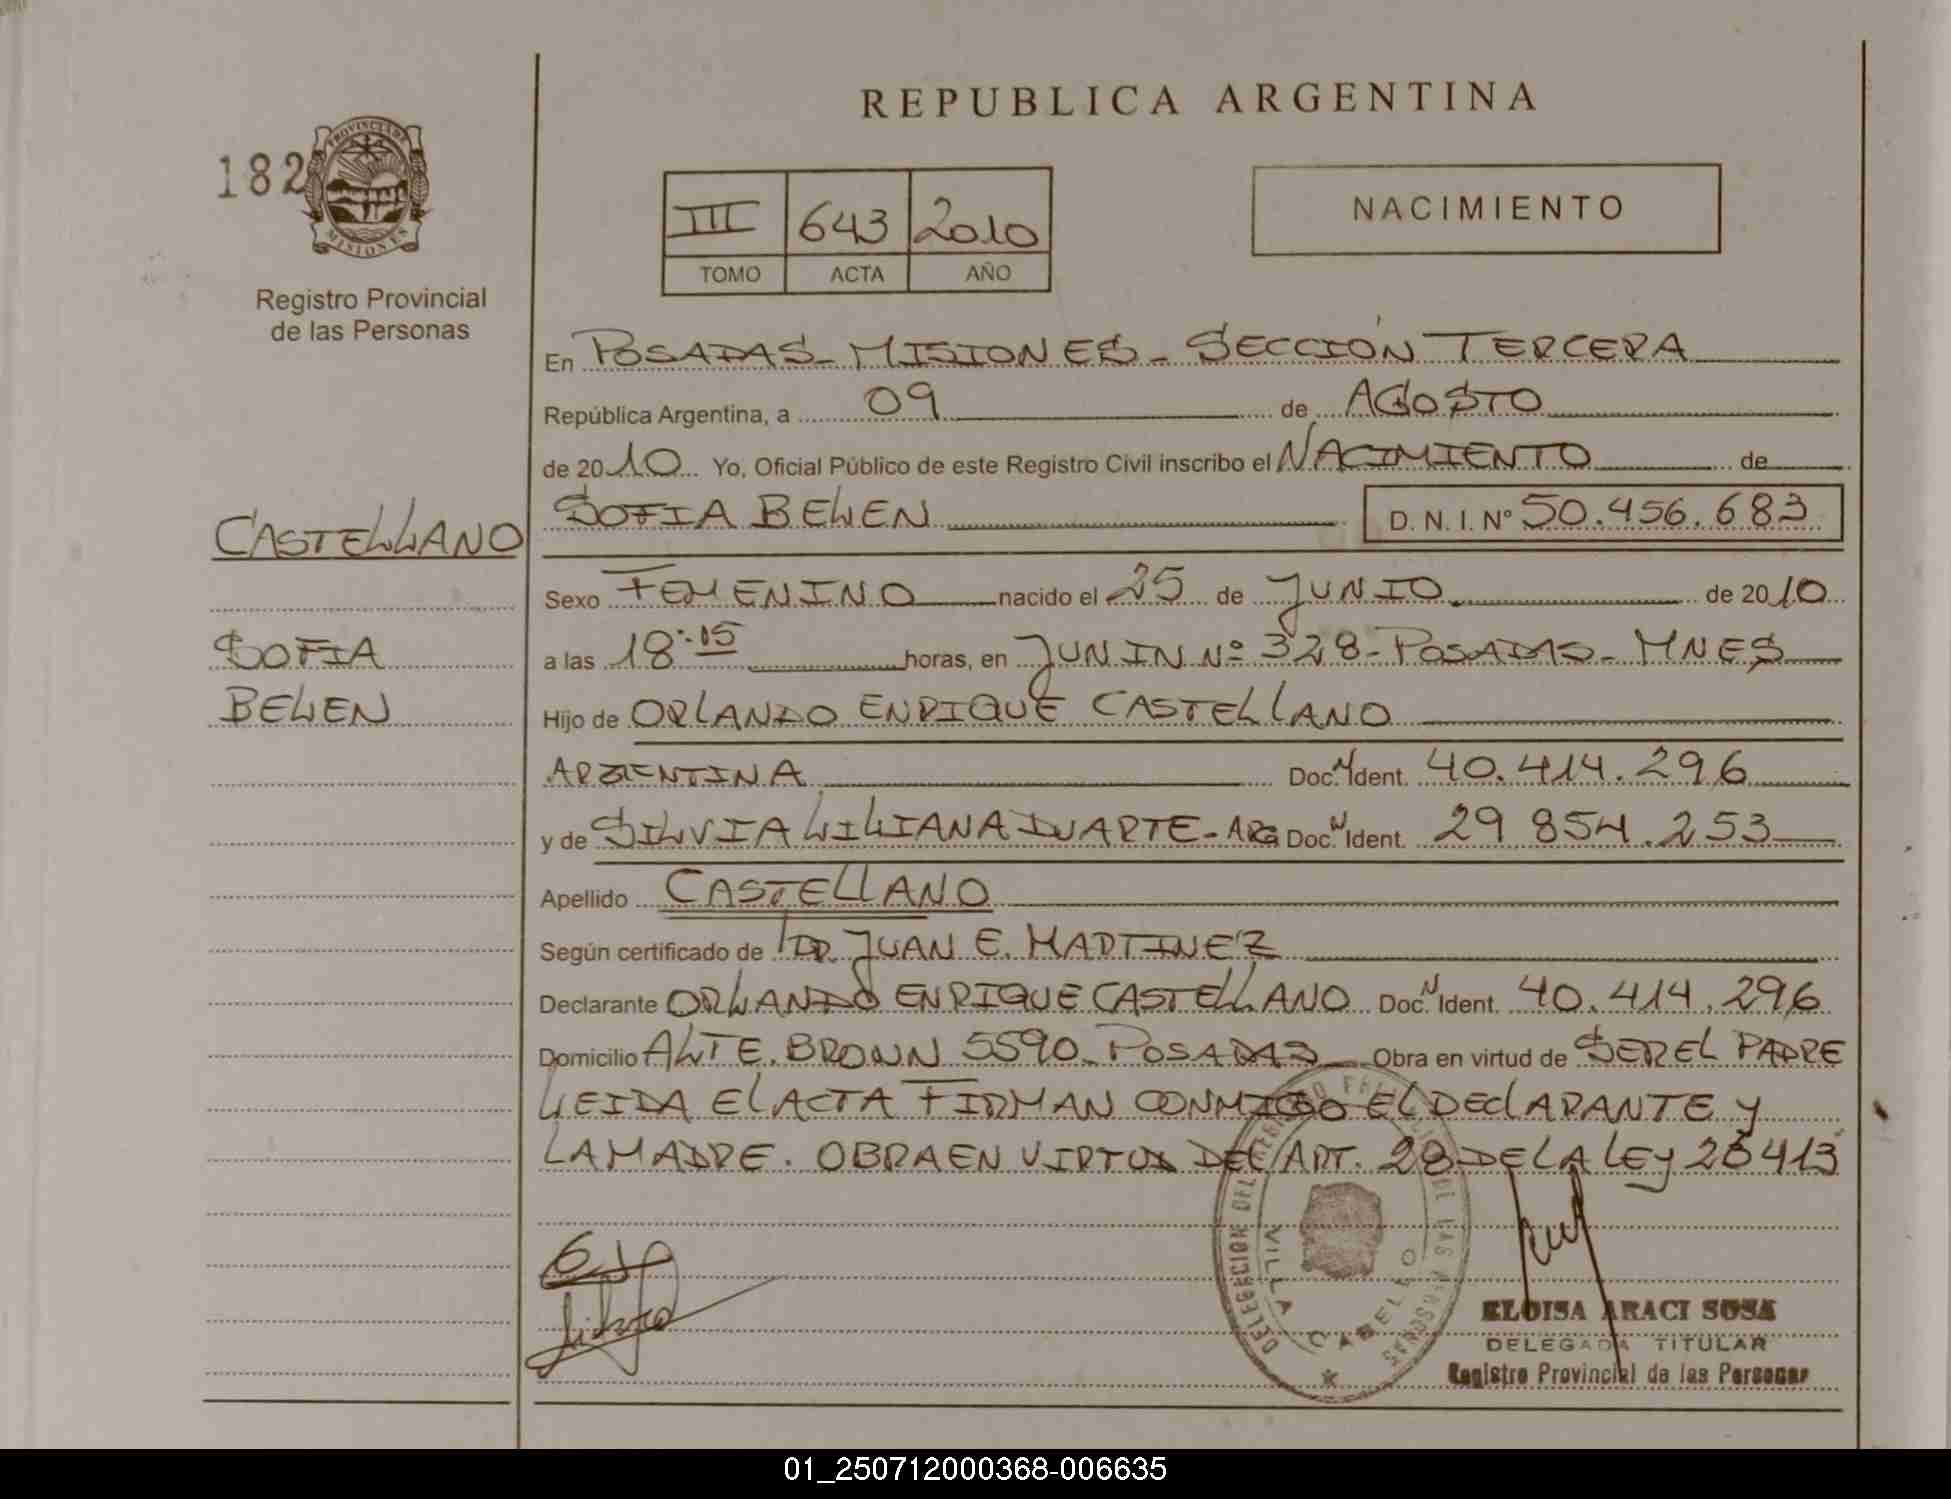 REPUBLICA ARGENTINA
182
PROVINCIA DE
MISIONES
Registro Provincial
de las Personas
III 643 2010
TOMO ACTA AÑO
NACIMIENTO
En POSADAS - MISIONES - SECCIÓN TERCERA
República Argentina, a 09 de AGOSTO
de 2010 Yo, Oficial Público de este Registro Civil inscribo el NACIMIENTO de
CASTELLANO
SOFIA BELEN D. N. I. Nº 50.456.683
Sexo FEMENINO nacido el 25 de JUNIO de 2010
SOFIA
a las 18:15 horas, en JUNIN Nº 328 - POSADAS - MNES
BELEN
Hijo de ORLANDO ENRIQUE CASTELLANO
ARGENTINA Doc. N Ident. 40.414.296
y de SILVIA LILIANA DUARTE - ARG Doc. N Ident. 29.854.253
Apellido CASTELLANO
Según certificado de DR. JUAN E. MARTINEZ
Declarante ORLANDO ENRIQUE CASTELLANO Doc. N Ident. 40.414.296
Domicilio ALTE. BROWN 5590 - POSADAS Obra en virtud de SER EL PADRE
LEIDA EL ACTA FIRMAN CONMIGO EL DECLARANTE Y
LA MADRE. OBRA EN VIRTUD DEL ART. 28 DE LA LEY 26413
DELEGACION DEL DE LAS PERSONAS
VILLA CABELLO
ELOISA ARACI SOSA
DELEGADA TITULAR
Registro Provincial de las Personas
01_250712000368-006635